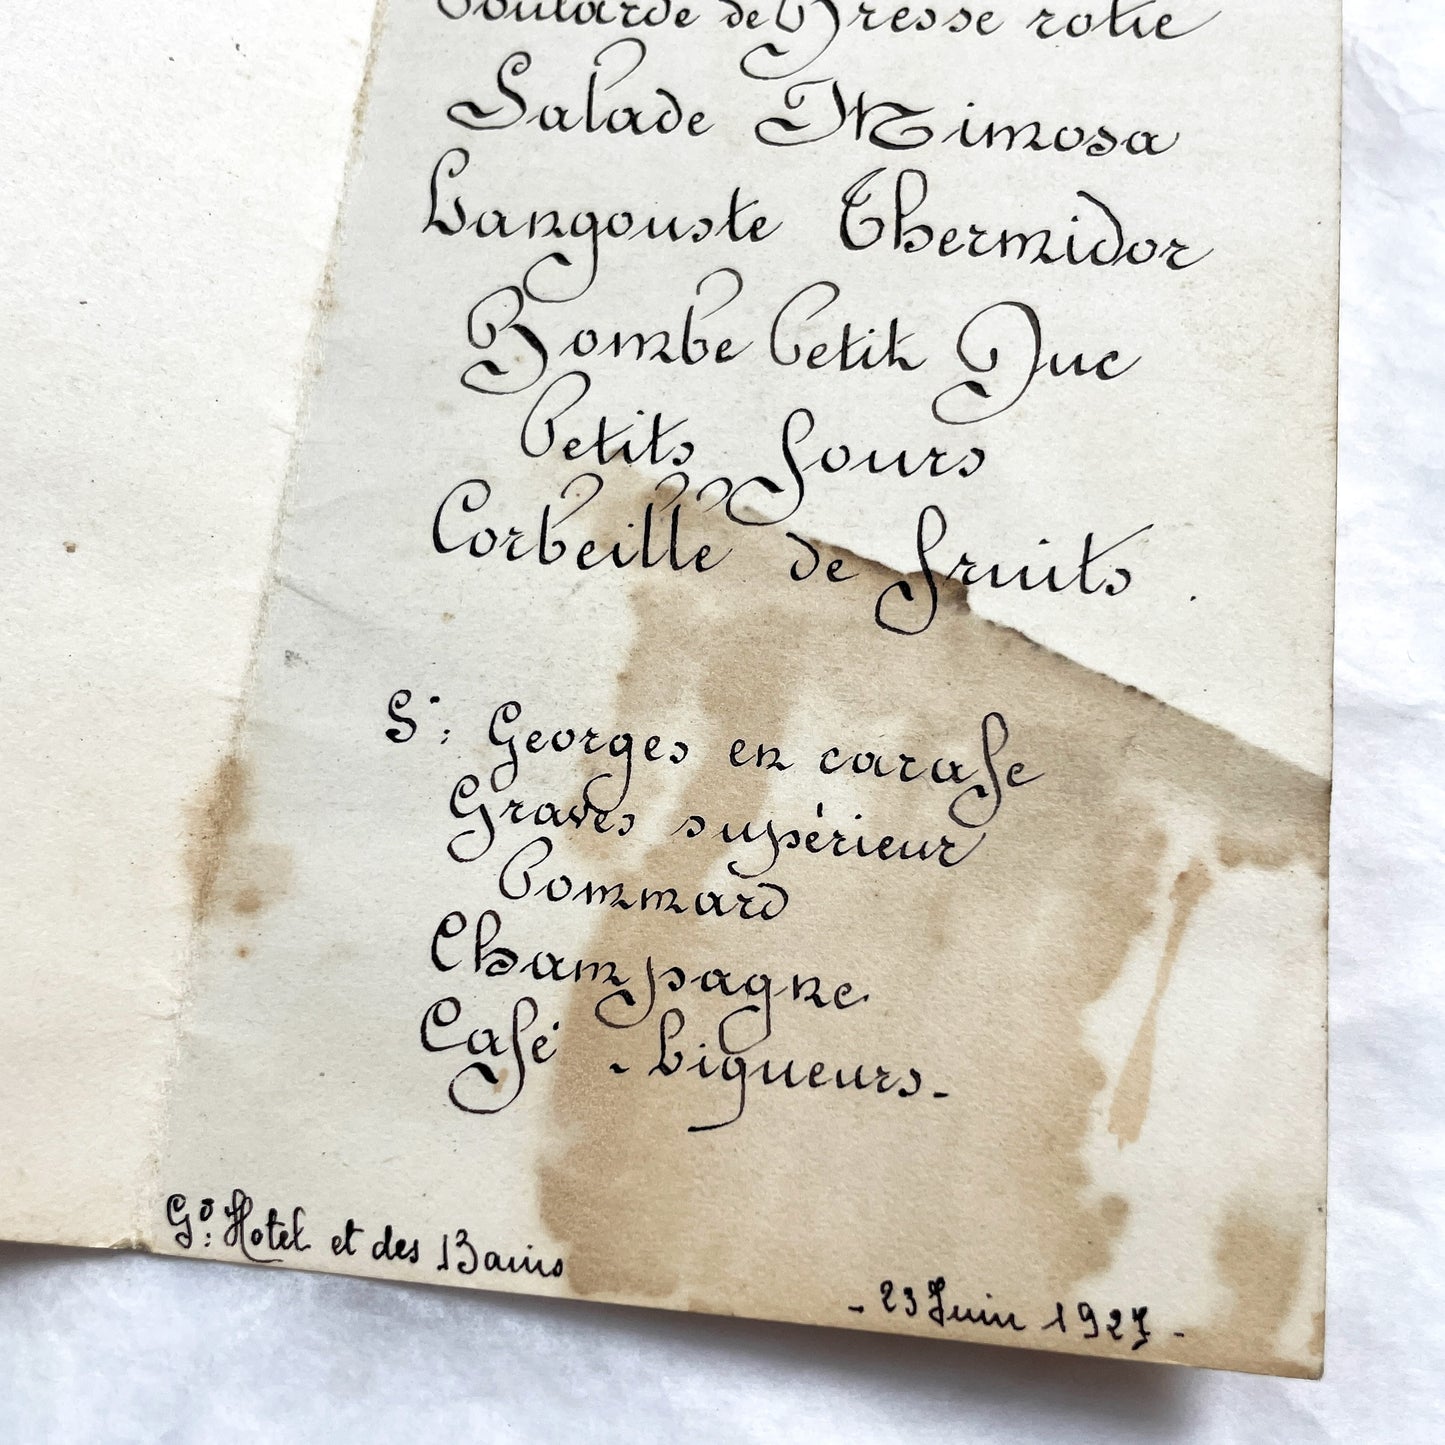 Poularde de Bresse rotie
Salade Mimosa
Langouste Thermidor
Bombe Petit Duc
Petits fours
Corbeille de fruits.
St: Georges en carafe
Graves supérieur
Pommard
Champagne.
Café - Liqueurs-
Gd: Hotel et des Bains
- 23 Juin 1927 -